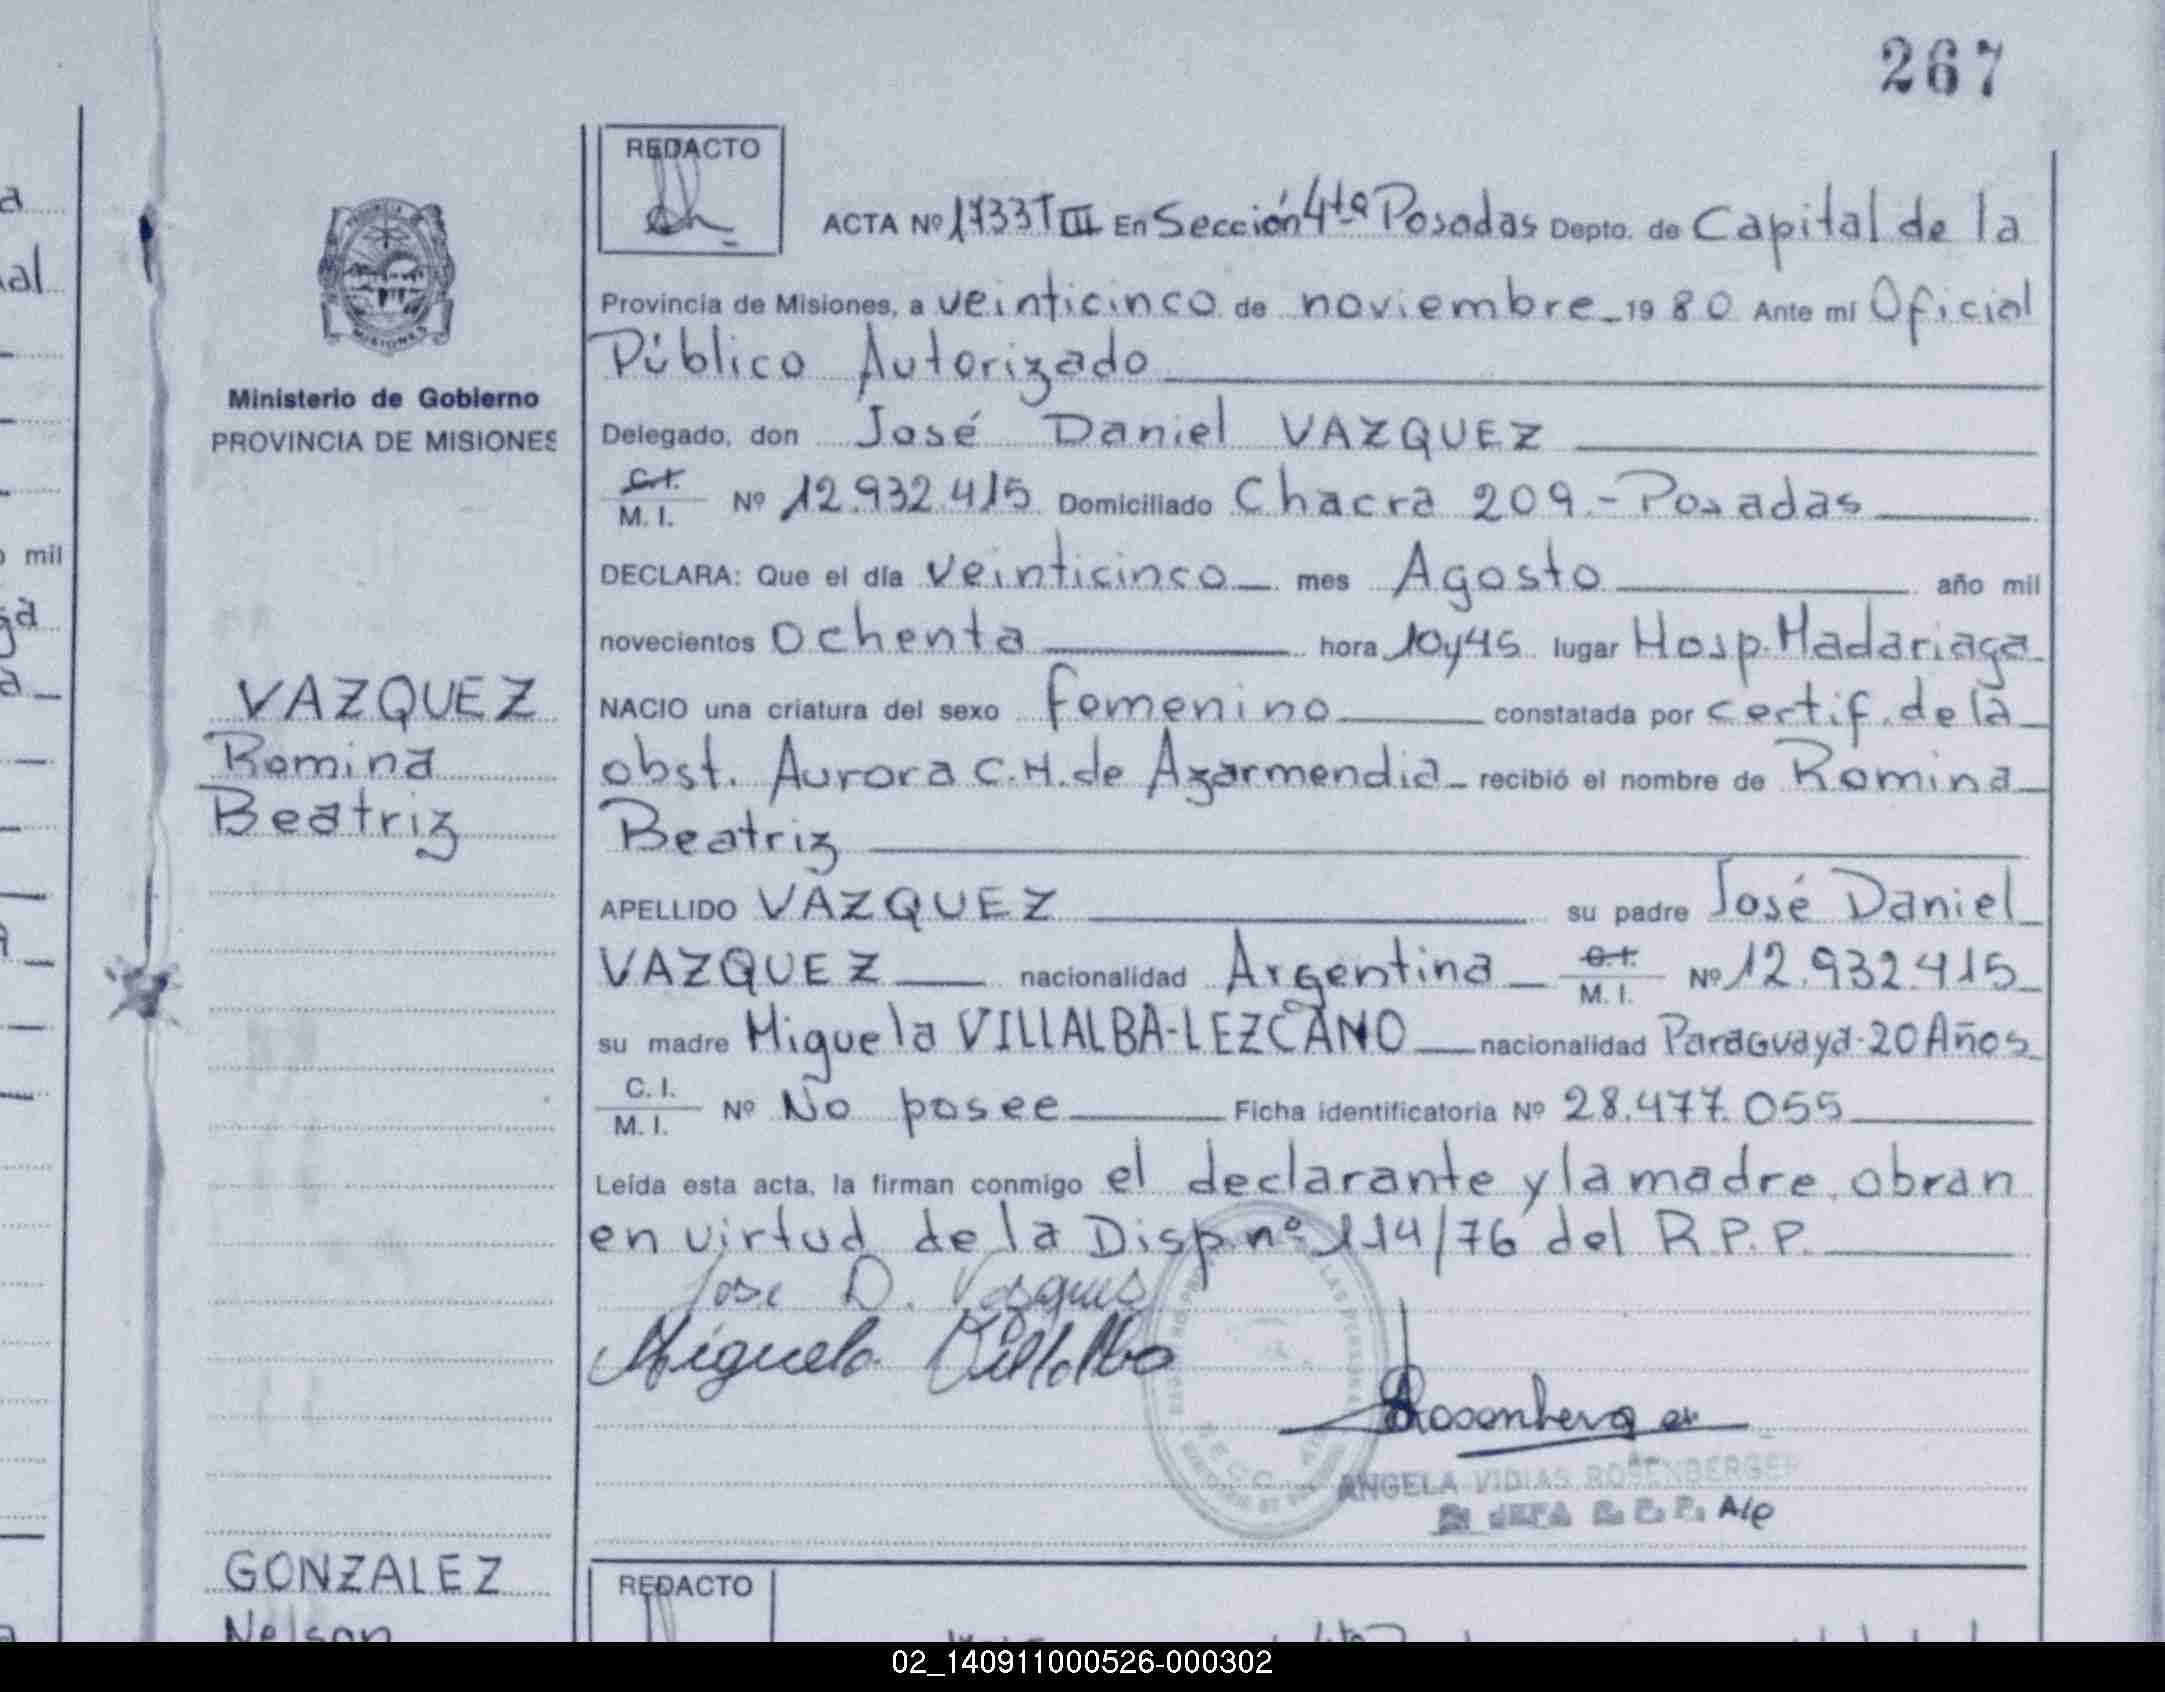 267
REDACTO
ACTA Nº 1733 T III En Sección 4ta Posadas Depto. de Capital de la
Provincia de Misiones, a veinticinco de noviembre 1980 Ante mí Oficial
Público Autorizado
Ministerio de Gobierno
PROVINCIA DE MISIONES
Delegado, don José Daniel VAZQUEZ
C.I.
M. I. Nº 12.932.415 Domiciliado Chacra 209 - Posadas
DECLARA: Que el día veinticinco mes Agosto año mil
novecientos Ochenta hora 10y45 lugar Hosp. Madariaga
VAZQUEZ
Romina
Beatriz
NACIO una criatura del sexo femenino constatada por certif. de la
obst. Aurora C.H. de Azarmendia recibió el nombre de Romina
Beatriz
APELLIDO VAZQUEZ su padre José Daniel
VAZQUEZ nacionalidad Argentina C.I.
M. I. Nº 12.932.415
su madre Miguela VILLALBA-LEZCANO nacionalidad Paraguaya-20 Años
C. I.
M. I. Nº No posee Ficha identificatoria Nº 28.477.055
Leída esta acta, la firman conmigo el declarante y la madre, obran
en virtud de la Disp. nº 114/76 del R.P.P.
Jose D. Vasques
Miguela Villalba
Rosenberger
ANGELA VIDIAS ROSENBERGER
JEFA R.P.P. A/C
GONZALEZ
Nelson
REDACTO
mil
02_140911000526-000302